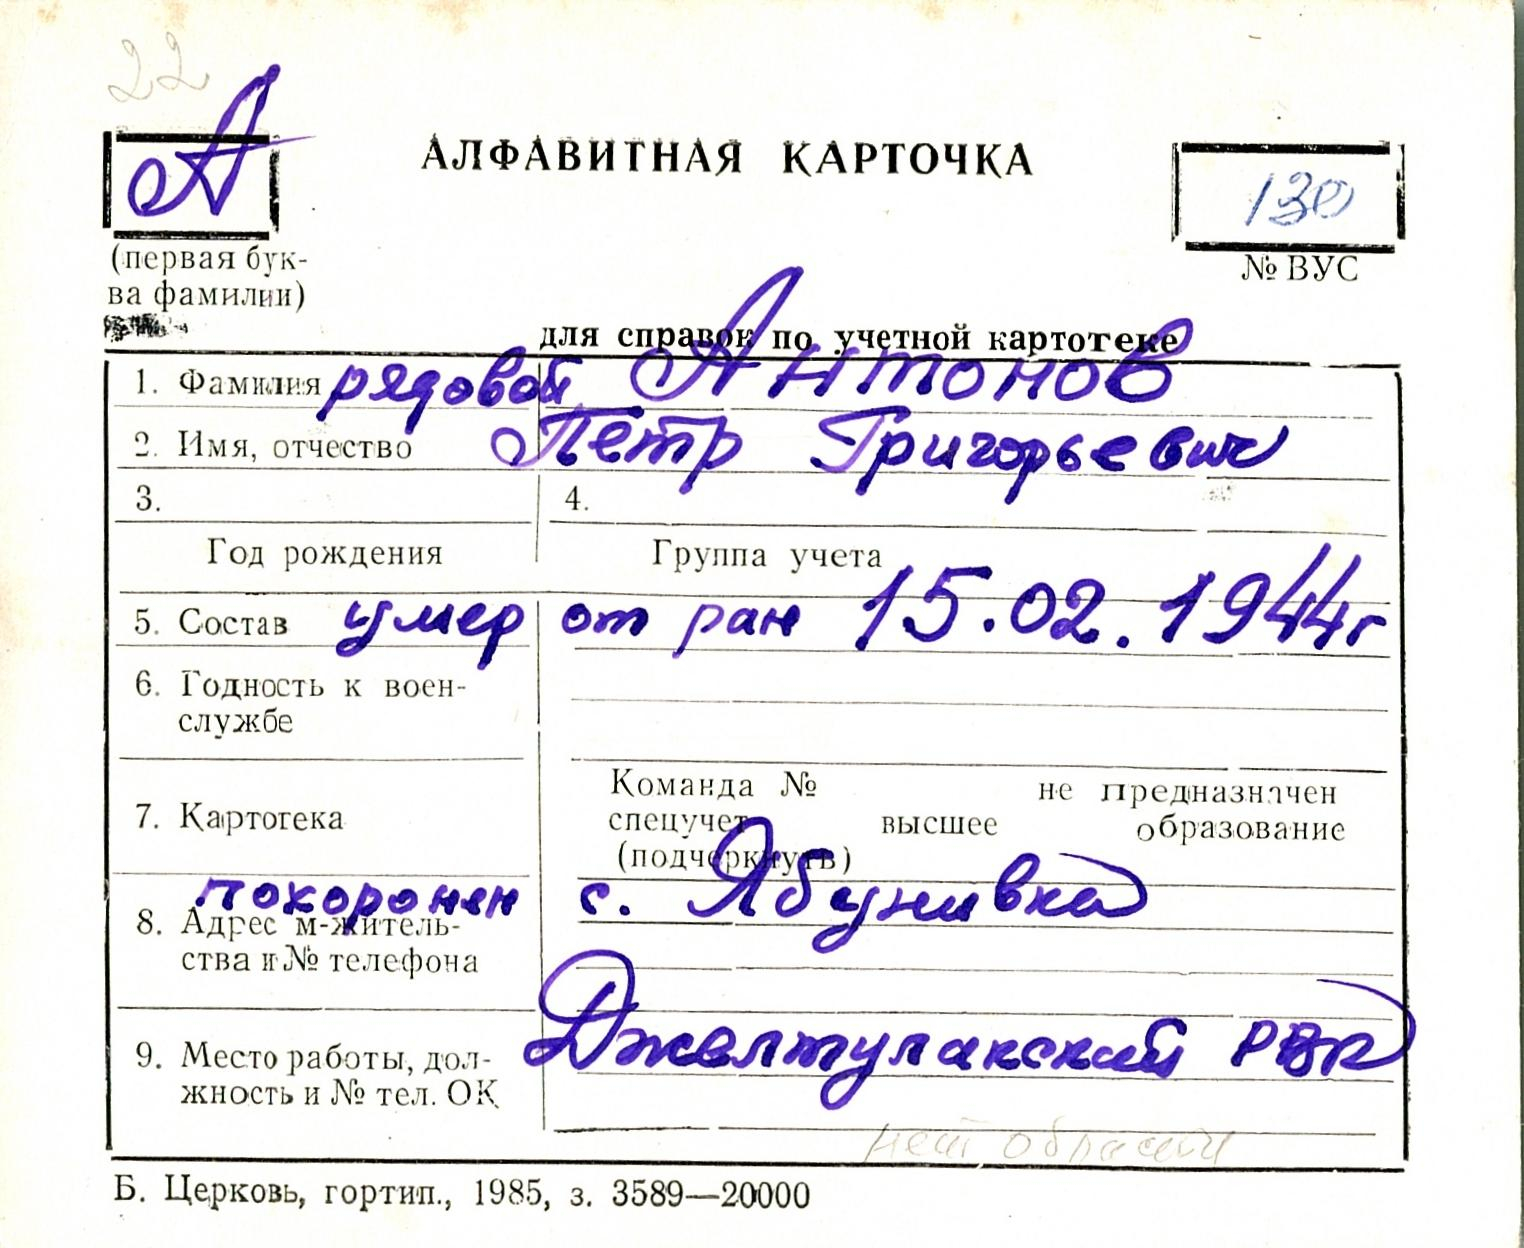 22
А
АЛФАВИТНАЯ КАРТОЧКА
130
(первая бук-
ва фамилии)
№ ВУС
для справок по учетной картотеке
1. Фамилия рядовой Антонов
2. Имя, отчество Петр Григорьевич
3. 4.
Год рождения Группа учета
5. Состав умер от ран 15.02.1944г
6. Годность к воен-
службе
Команда № не предназначен
7. Картотека спецучет высшее образование
(подчеркнуть)
похоронен с. Ябунивка
8. Адрес м-житель-
ства и № телефона
Джелтулакский РВК
9. Место работы, дол-
жность и № тел. ОК
нет
Б. Церковь, гортип., 1985, з. 3589—20000